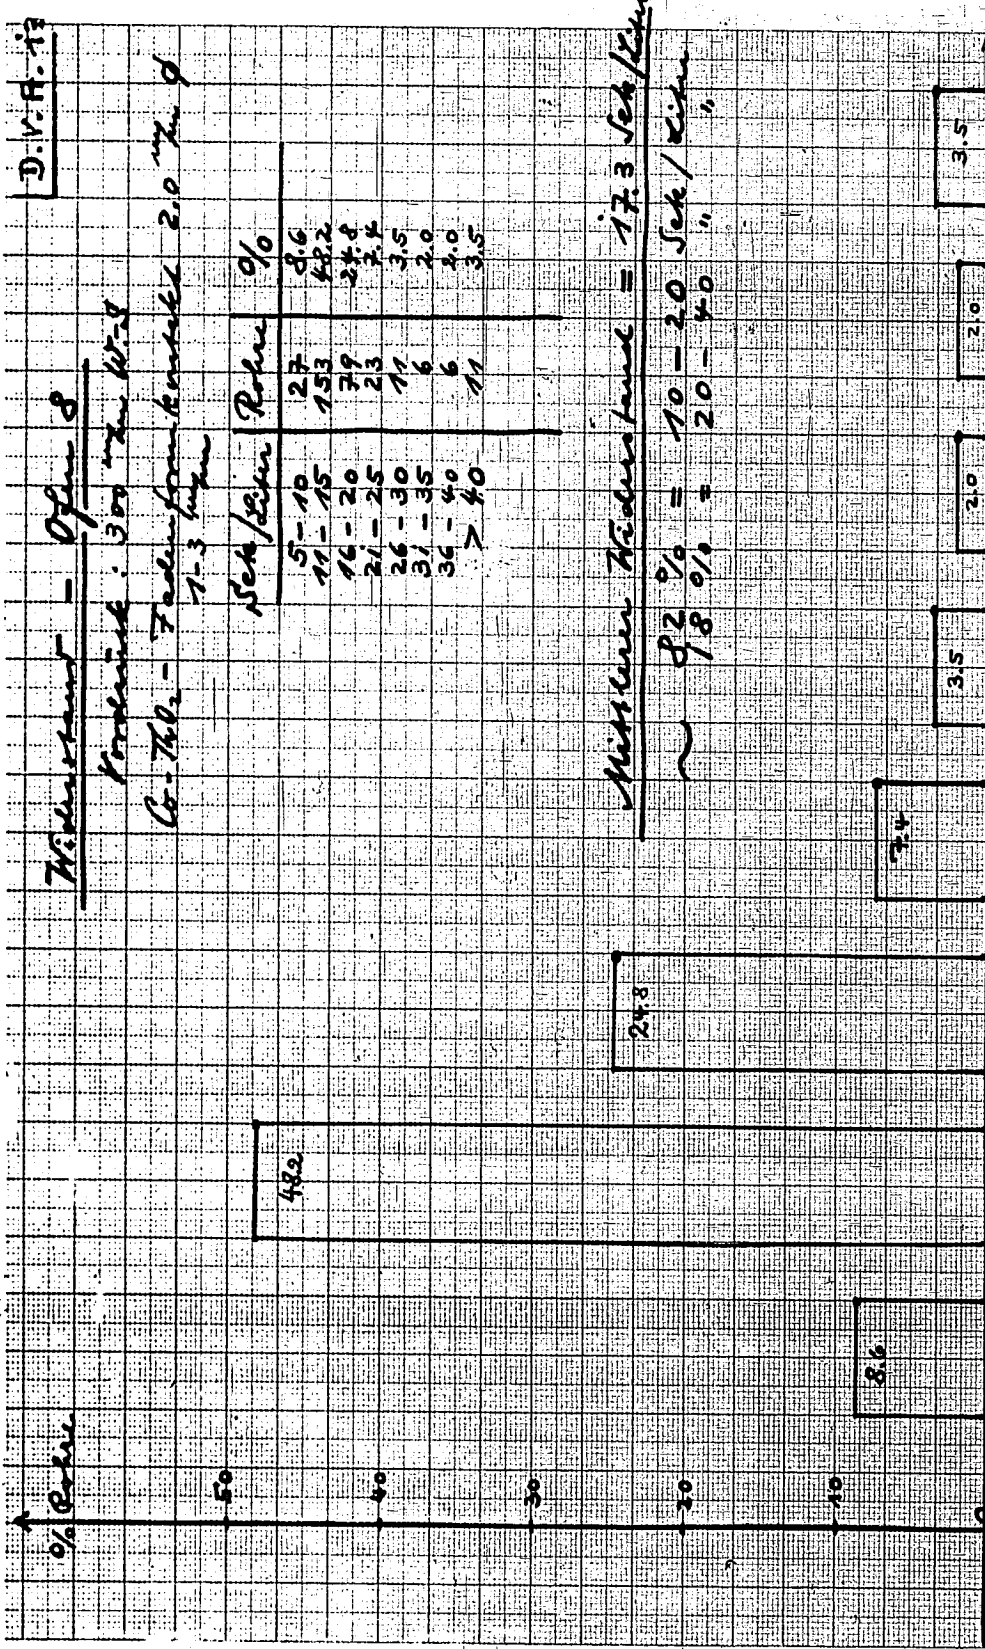 D.V.A.
Widerstand - Ofen 8
Vordruck: 300 mm W.S
Co-ThO₂ - Fadenformkontakt 2.0 mm ϕ
1-3 mm
Sek/Liter Rohre %
5-10 27 8.6
11-15 153 48.2
16-20 79 24.8
21-25 23 7.4
26-30 11 3.5
31-35 6 2.0
36-40 6 2.0
> 40 11 3.5
Mittlerer Widerstand = 17.3 Sek/Liter
~ 82 % = 10-20 Sek/Liter
18 % = 20-40 " "
% Rohre
50
40
30
20
10
0
8.6
48.2
24.8
7.4
3.5
2.0
2.0
3.5